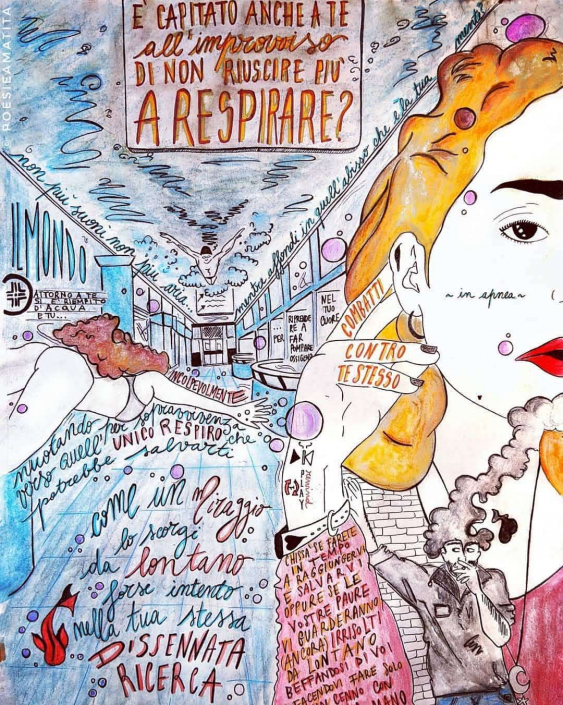 POESIEAMATITA
È CAPITATO ANCHE A TE
all'improvviso
DI NON RIUSCIRE PIÙ
A RESPIRARE?
non più suoni non più aria
mentre affondi in quell'abisso che è la tua mente?
IL MONDO
ATTORNO A TE
SI È RIEMPITO
D'ACQUA
E TU...
INCOLPEVOLMENTE
nuotando per sopravvivenza
verso quell' UNICO RESPIRO che
potrebbe salvarti
come un miraggio
lo scorgi
da lontano
forse intento
nella tua stessa
DISSENNATA
RICERCA
PER
RIPRENDE
RE A
FAR
POMPARE
OSSIGENO
NEL
TUO
CUORE
COMBATTI
CONTRO
TE STESSO
~ in apnea ~
PLAY
CHISSÀ SE FARETE
IN TEMPO
A RAGGIUNGERVI
E SALVARVI
OPPURE SE LE
VOSTRE PAURE
VI GUARDERANNO
(ANCORA) IRRISOLTE
DA LONTANO
BEFFANDOSI DI VOI
FACENDOVI FARE SOLO
UN CENNO CON
LA MANO